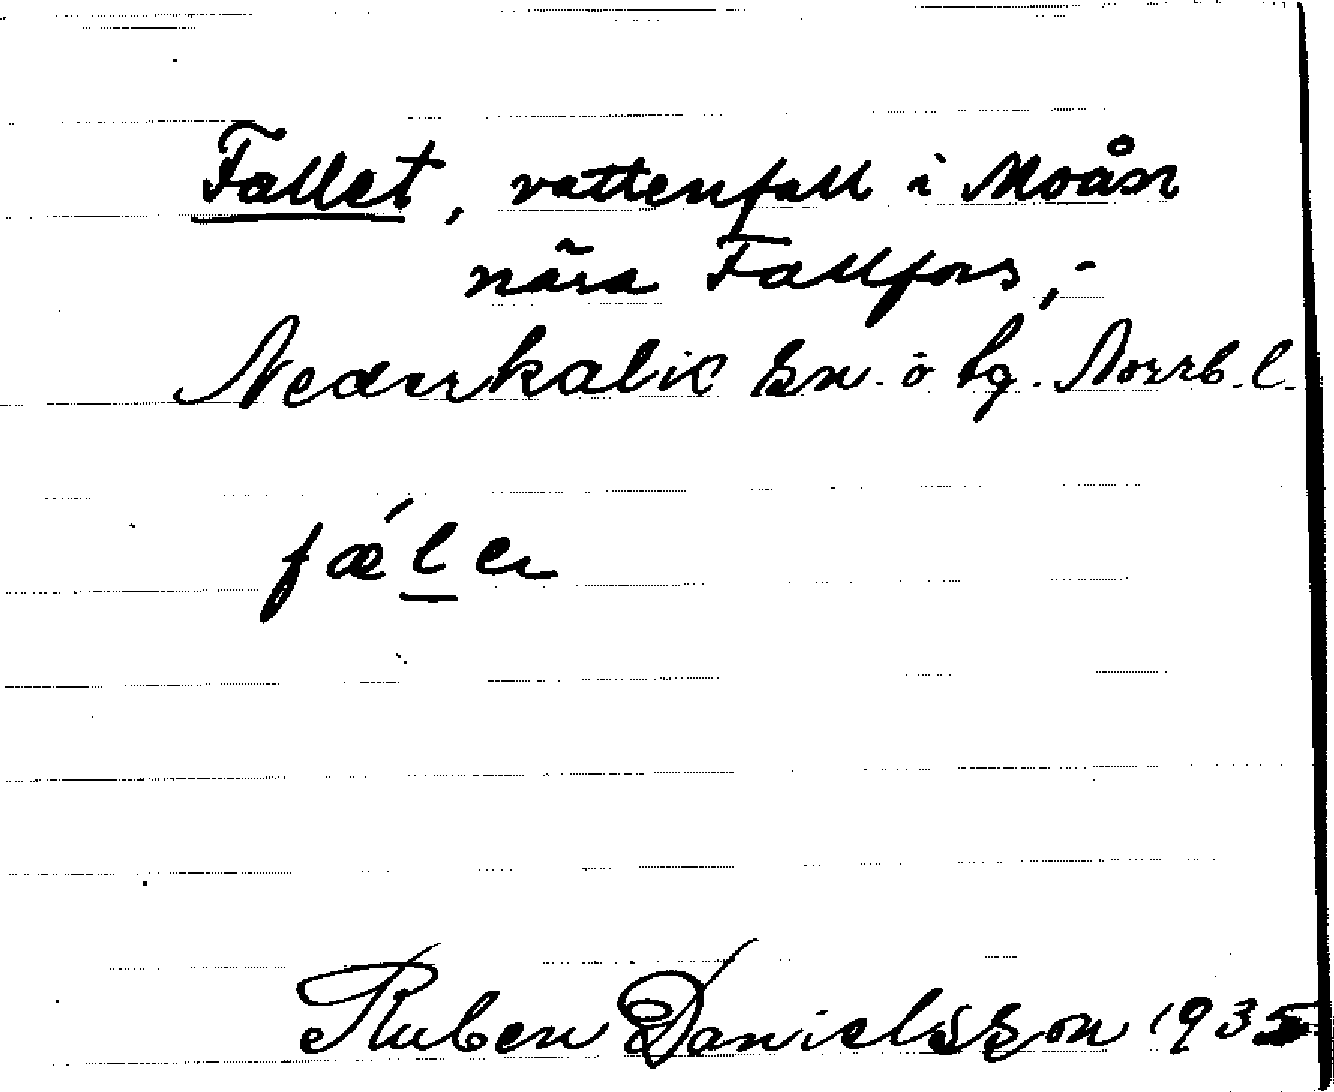 Fallet, vattenfall i Moån
nära Fallfors,-
Nederkalix sn. ö bg. Norrb. l.
fǽl̲er
Ruben Danielsson 1935